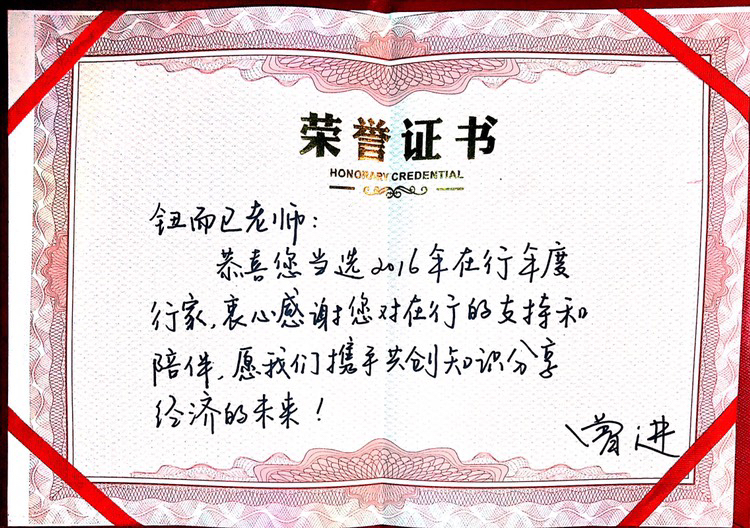 荣誉证书
HONORARY CREDENTIAL
钮而已老师：
恭喜您当选2016年在行年度
行家，衷心感谢您对在行的支持和
陪伴，愿我们携手共创知识分享
经济的未来！
曾进